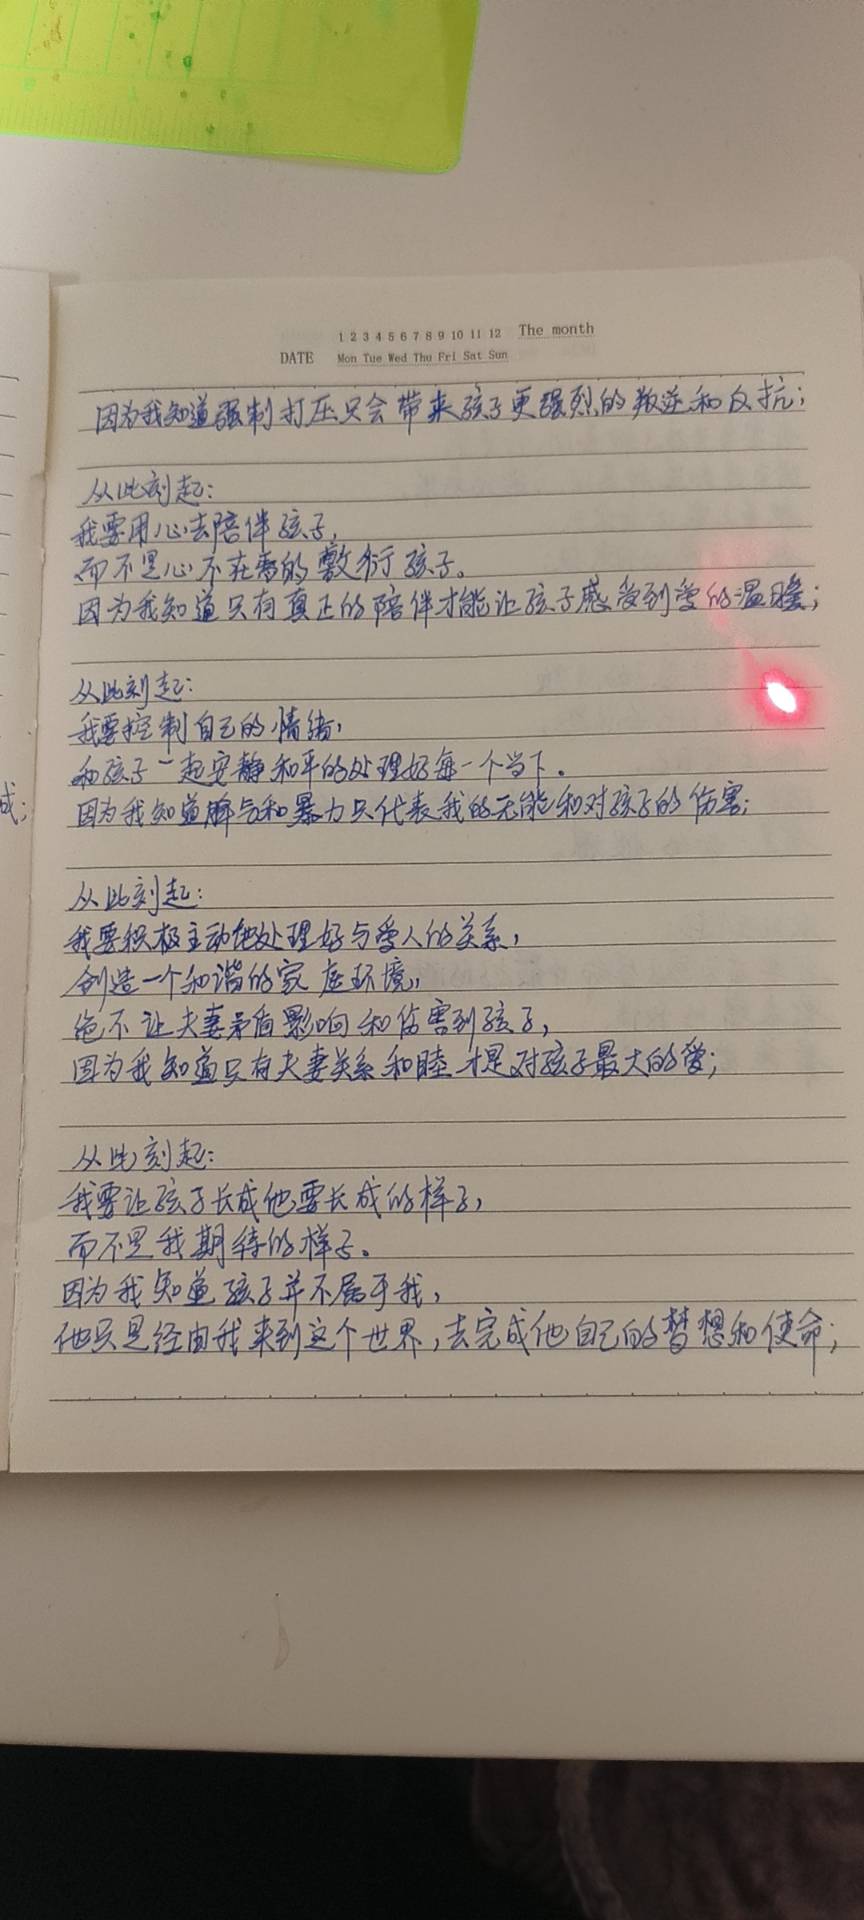 1 2 3 4 5 6 7 8 9 10 11 12 The month
DATE Mon Tue Wed Thu Fri Sat Sun
因为我知道强制打压只会带来孩子更强烈的叛逆和反抗；
从此刻起：
我要用心去陪伴孩子，
而不是心不在焉的敷衍孩子。
因为我知道只有真正的陪伴才能让孩子感受到爱的温暖；
从此刻起：
我要控制自己的情绪，
和孩子一起安静和平的处理好每一个当下。
因为我知道脾气和暴力只代表我的无能和对孩子的伤害；
成；
从此刻起：
我要积极主动地处理好与爱人的关系，
创造一个和谐的家庭环境，
绝不让夫妻矛盾影响和伤害到孩子，
因为我知道只有夫妻关系和睦才是对孩子最大的爱；
从此刻起：
我要让孩子长成他要长成的样子，
而不是我期待的样子。
因为我知道孩子并不属于我，
他只是经由我来到这个世界，去完成他自己的梦想和使命；